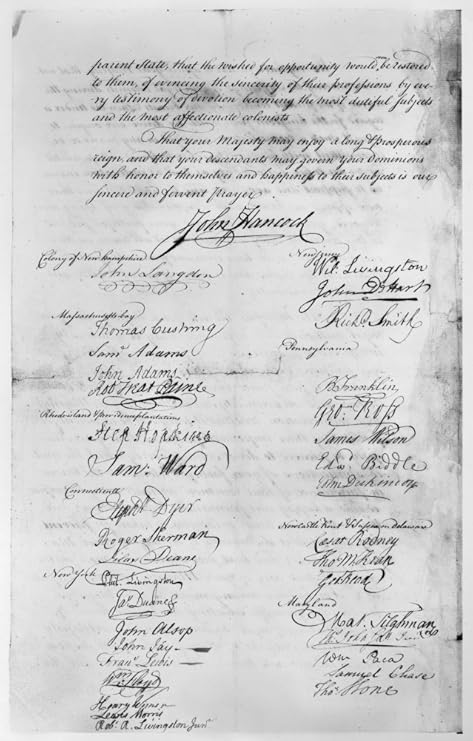 parent State, that the wished for opportunity would be restored
to them, of evincing the sincerity of their professions by eve-
ry testimony of devotion becoming the most dutiful subjects
and the most affectionate colonists
That your Majesty may enjoy a long & prosperous
reign, and that your descendants may govern your dominions
with honor to themselves and happiness to their subjects is our
sincere and fervent prayer
John Hancock
Colony of New Hampshire
John Langdon
Massachusetts bay
Thomas Cushing
Saml Adams
John Adams
Robt Treat Paine
Rhode island & providence plantations
Step Hopkins
Sam: Ward
Connecticutt
Elipht Dyer
Roger Sherman
Silas Deane
New York
Phil. Livingston
Jas Duane
John Alsop
John Jay
Frans Lewis
Wm Floyd
Henry Wisner
Lewis Morris
Robt R. Livingston Junr
New Jersey
Wil: Livingston
John D Hart
Richd Smith
Pennsylvania
B Franklin
Geo: Ross
James Wilson
Edwd Biddle
John Dickinson
Newcastle Kent & Sussex on delaware
Caesar Rodney
Tho M:Kean
Geo Read
Maryland
Mat. Tilghman
Wm Paca
Samuel Chase
Thos Stone